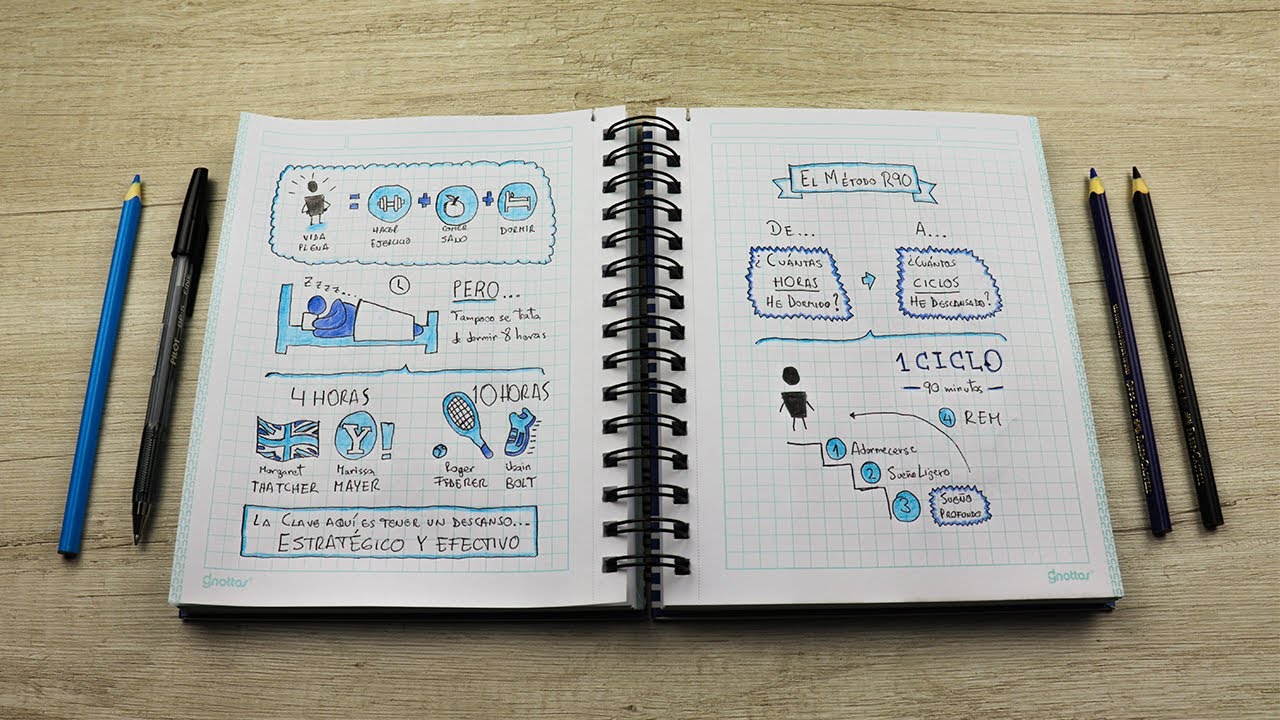 VIDA
PLENA
=
HACER
EJERCICIO
+
COMER
SANO
+
DORMIR
ZZZZ...
PERO...
Tampoco se trata
de dormir 8 horas
4 HORAS
10 HORAS
Y!
Margaret
THATCHER
Marissa
MAYER
Roger
FEDERER
Usain
BOLT
LA CLAVE AQUÍ ES TENER UN DESCANSO...
ESTRATÉGICO Y EFECTIVO
Gnottas
EL MÉTODO R90
DE...
A...
¿CUÁNTAS
HORAS
HE DORMIDO?
¿CUÁNTOS
CICLOS
HE DESCANSADO?
1 CICLO
— 90 minutos —
4 REM
1 Adormecerse
2 Sueño Ligero
3 SUEÑO
PROFUNDO
Gnottas